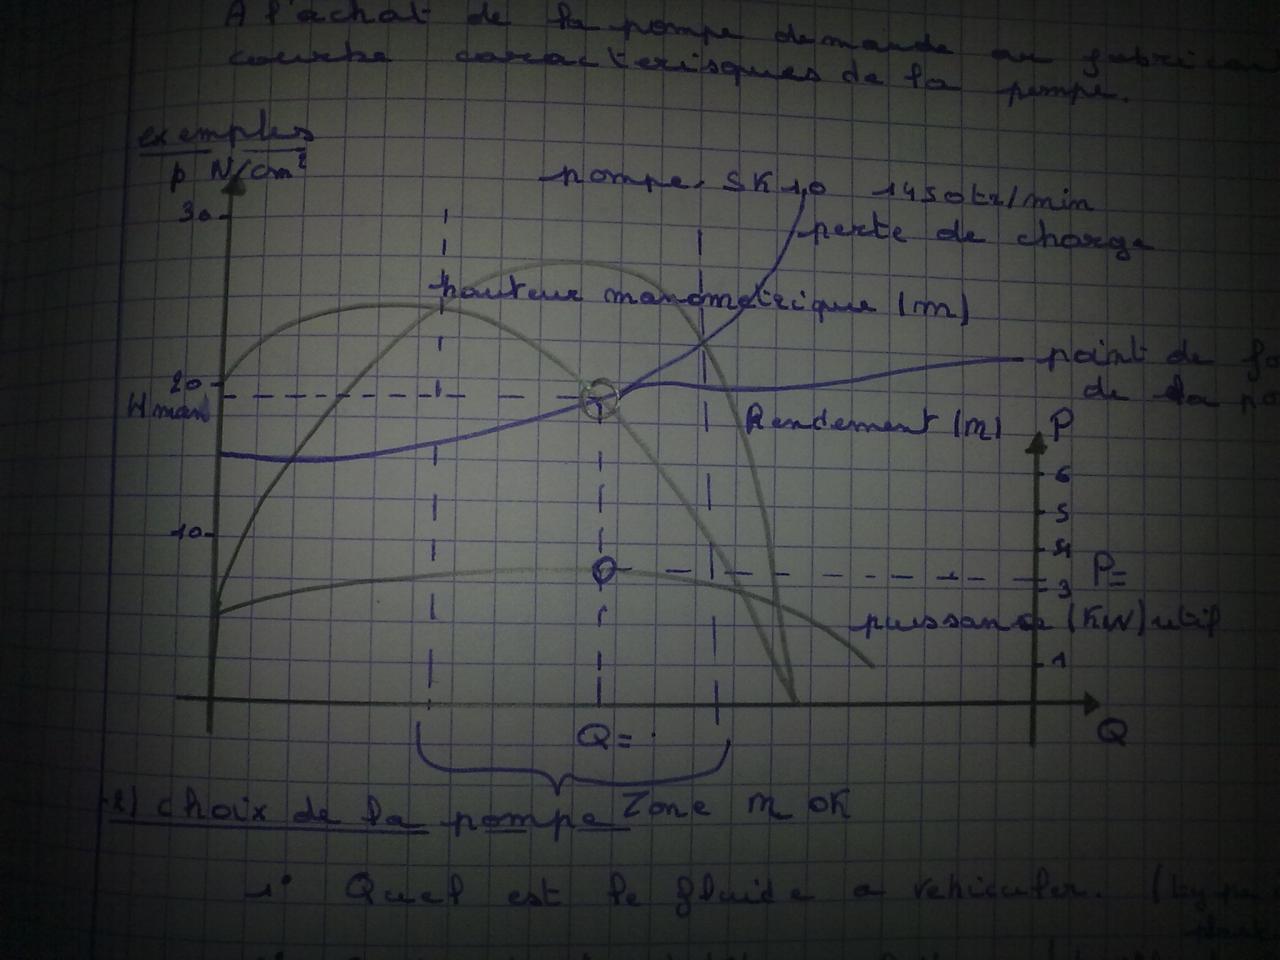 A l'achat de la pompe demande au fabrican
courbe caractérisques de la pompe.
exemples
p N/cm²
pompe SK 1,0 1450tr/min
30
perte de charge
hauteur manométrique (m)
point de fo
20
H man
de la po
Rendement (m)
P
6
5
10
4
3
P=
puissance (KW) util
1
Q=
Q
Zone m OK
2) choix de la pompe
1° Quel est le fluide a vehiculer. (type